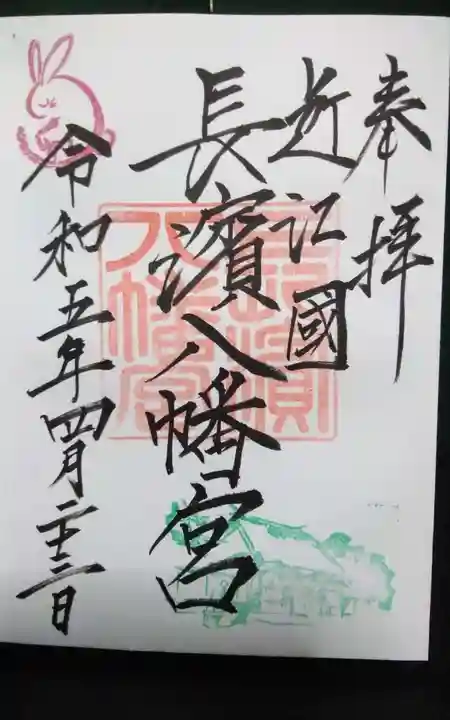 奉拝
近江國
長濱八幡宮
令和五年四月二十三日
長濱八幡宮